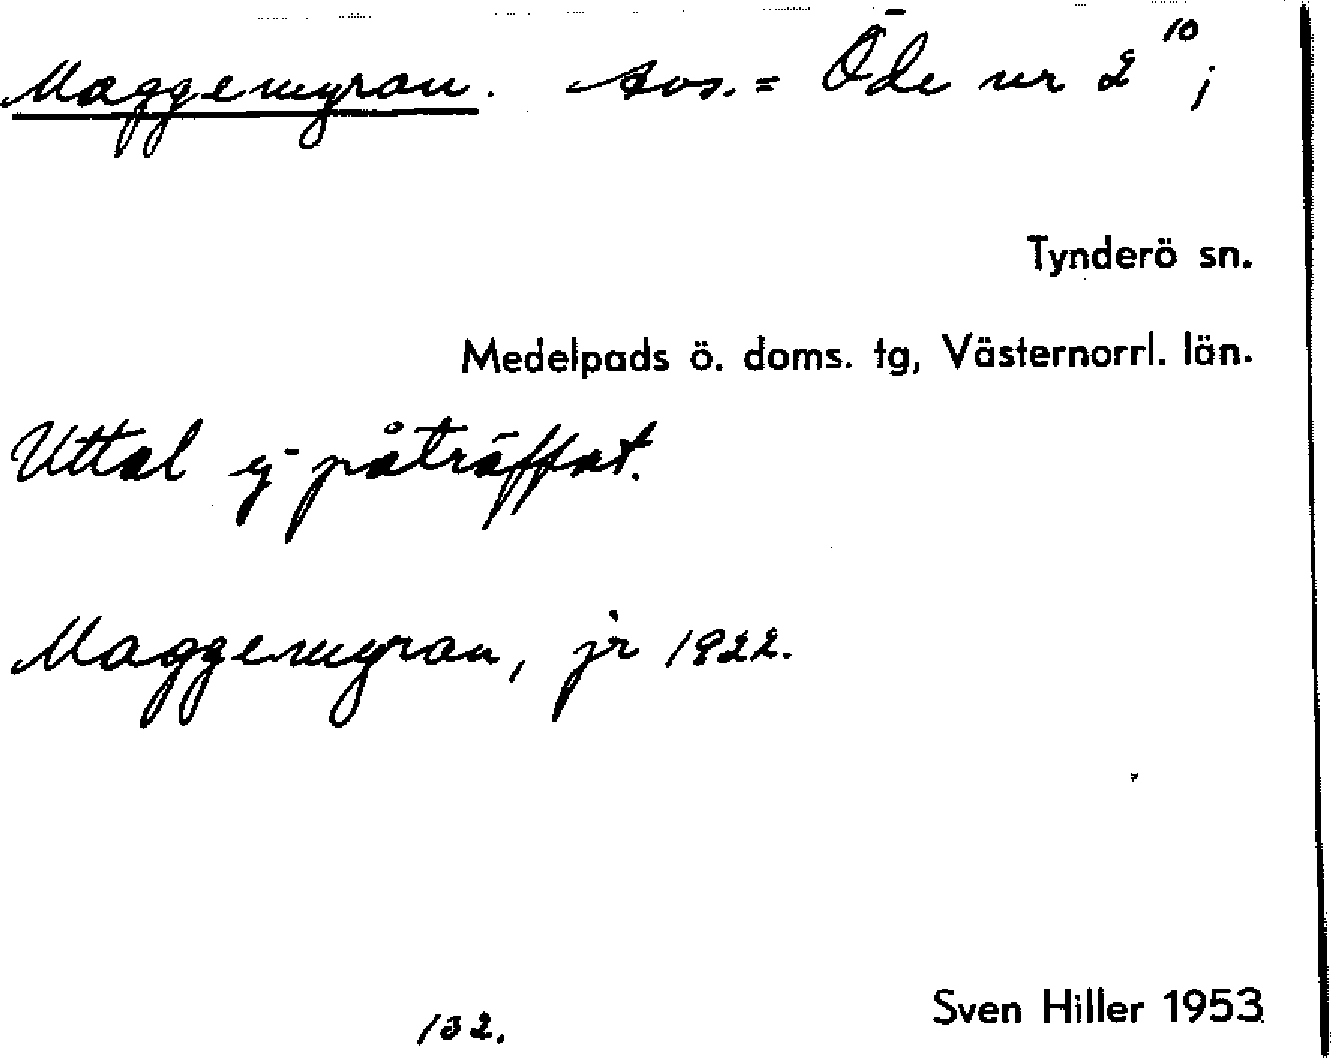 Maggemyran. Avs. = Öde nr 2¹⁰;
Tynderö sn.
Medelpads ö. doms. tg, Västernorrl. län.
Uttal ej påträffat.
Maggemyran, jr 1922.
132.
Sven Hiller 1953